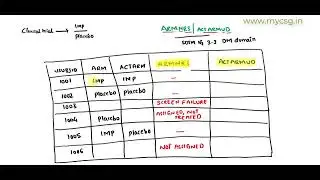 www.mycsg.in
Clinical trial → IMP
Placebo
ARMNRS | ACTARMUD
SDTM IG 3.3 DM domain
USUBJID ARM ACTARM ARMNRS ACTARMUD
1001 IMP IMP —
1002 Placebo Placebo —
1003 SCREEN FAILURE
1004 Placebo ASSIGNED, NOT TREATED
1005 IMP Placebo —
1006 NOT ASSIGNED